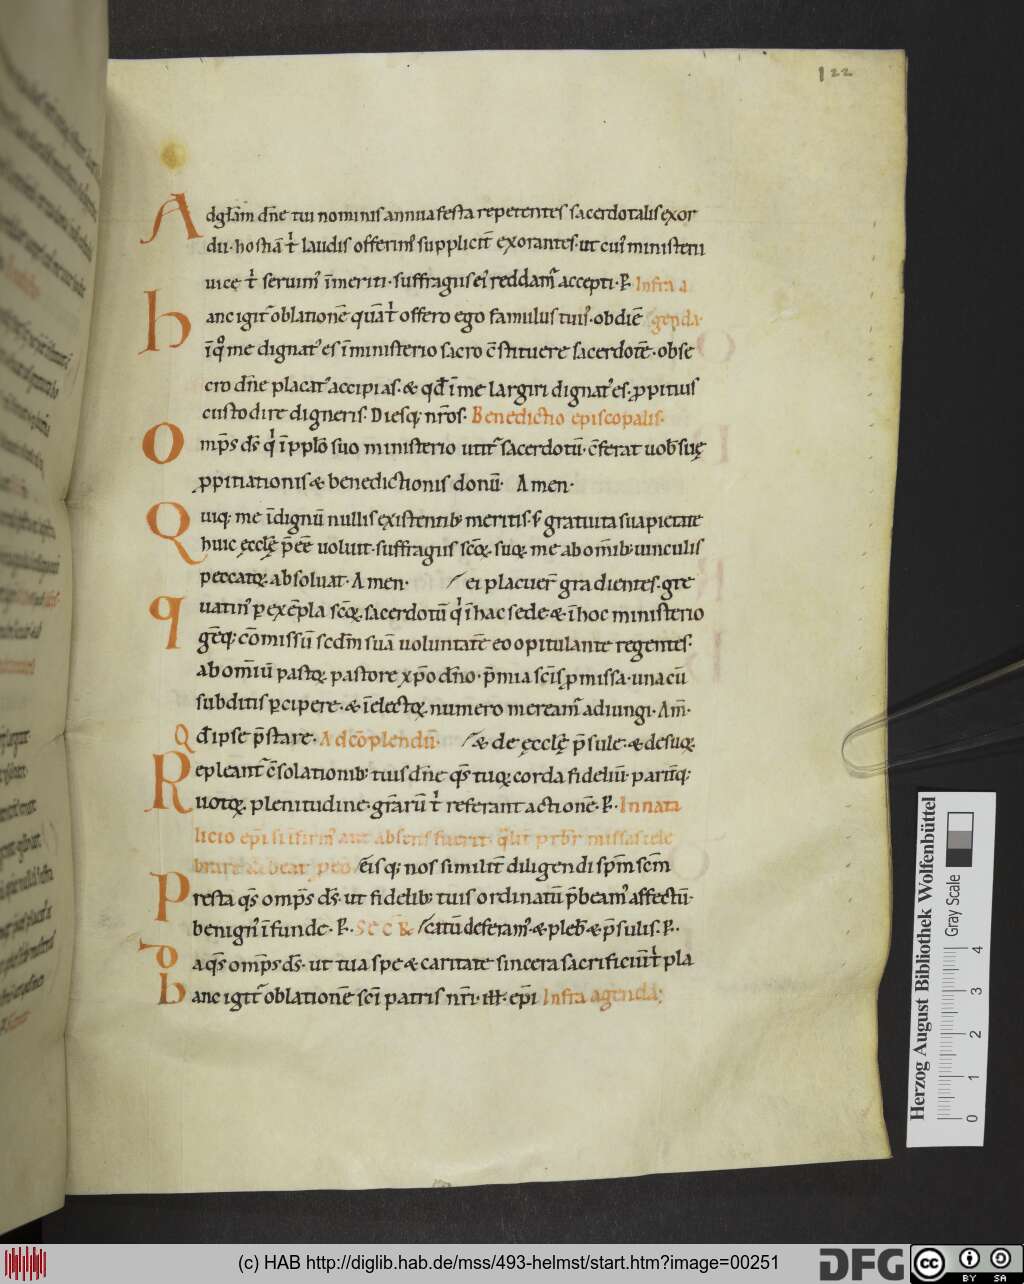 122
Adgłam dn̄e tui nominis annua festa repetentes sacerdotalis exor
dii· hostiā t̄ laudis offerim᾽ supplicit̄ exorantes· ut cui᾽ ministerii
uice t̄ seruim᾽ īmeriti· suffragiis ei᾽ reddam̄ accepti· P̄· Infra a
hanc igit̄ oblationē quā t̄ offero ego famulus tuus· ob diē genda·
īq̊ me dignat᾽ es īministerio sacro c̄stituere sacerdotē· obse
cro dn̄e placat᾽ accipias· & qd̄ īme largiri dignat᾽ es· ꝓpitius
custodire digneris· Diesq; nr̄os· Benedictio episcopalis·
Omp̄s ds̄ q̇ īpplo᾽ suo ministerio utit̄ sacerdotū· c̄ferat uob̄ suę
ꝓpitiationis & benedictionis donū· Amen·
Quiq; me īdignū nullis existentib; meritis· s̄ gratuita sua pietate
huic ęcclę̄ p̄ēē uoluit· suffragiis sc̄oꝝ suoꝝ me ab om̄ib; uinculis
peccatoꝝ absoluat· Amen· ei placuer̄ gradientes· gre
quatin᾽ ꝑ exēpla sc̄oꝝ sacerdotū q̇ ī hac sede & ī hoc ministerio
gēq; cōmissū scdm̄ suā uoluntatē eo opitulante regentes·
ab om̄iū pastoꝝ pastore xp̄o dn̄o· p̄mia sc̄is ꝓmissa· una cū
subditis ꝑcipere· & ī electoꝝ numero meream̄ adiungi· Am̄·
Qd̄ ipse p̄stare· Ad cōplendū· & de ęcclę̄ p̄sule· & de suoꝝ
Repleant̄ c̄solationib; tuis dn̄e qs̄ tuoꝝ corda fideliū· pariūq;
uotoꝝ plenitudine· gr̄arū t̄ referant actionē· P̄· In nata
licio ep̄i si īfirm᾽ aut absens fuerit· qlit̄ prbr̄ missas cele
brare debeat p eo ēis q; nos similit̄ diligendi sp̄m sc̄m
Presta qs̄ omp̄s ds̄· ut fidelib; tuis ordinatū p̄beam᾽ affectū·
benign᾽ īfunde· P̄· SECR citū deferam᾽· & pleb̄ & p̄sulis· P̄·
Da qs̄ omp̄s ds̄· ut tua spe & caritate sincera sacrificiū t̄ pla
hanc igit̄ oblationē sc̄i patris nr̄i· ill̄· ep̄i Infra agenda;
Herzog August Bibliothek Wolfenbüttel
Gray Scale
0 1 2 3 4
(c) HAB http://diglib.hab.de/mss/493-helmst/start.htm?image=00251
DFG
cc BY SA